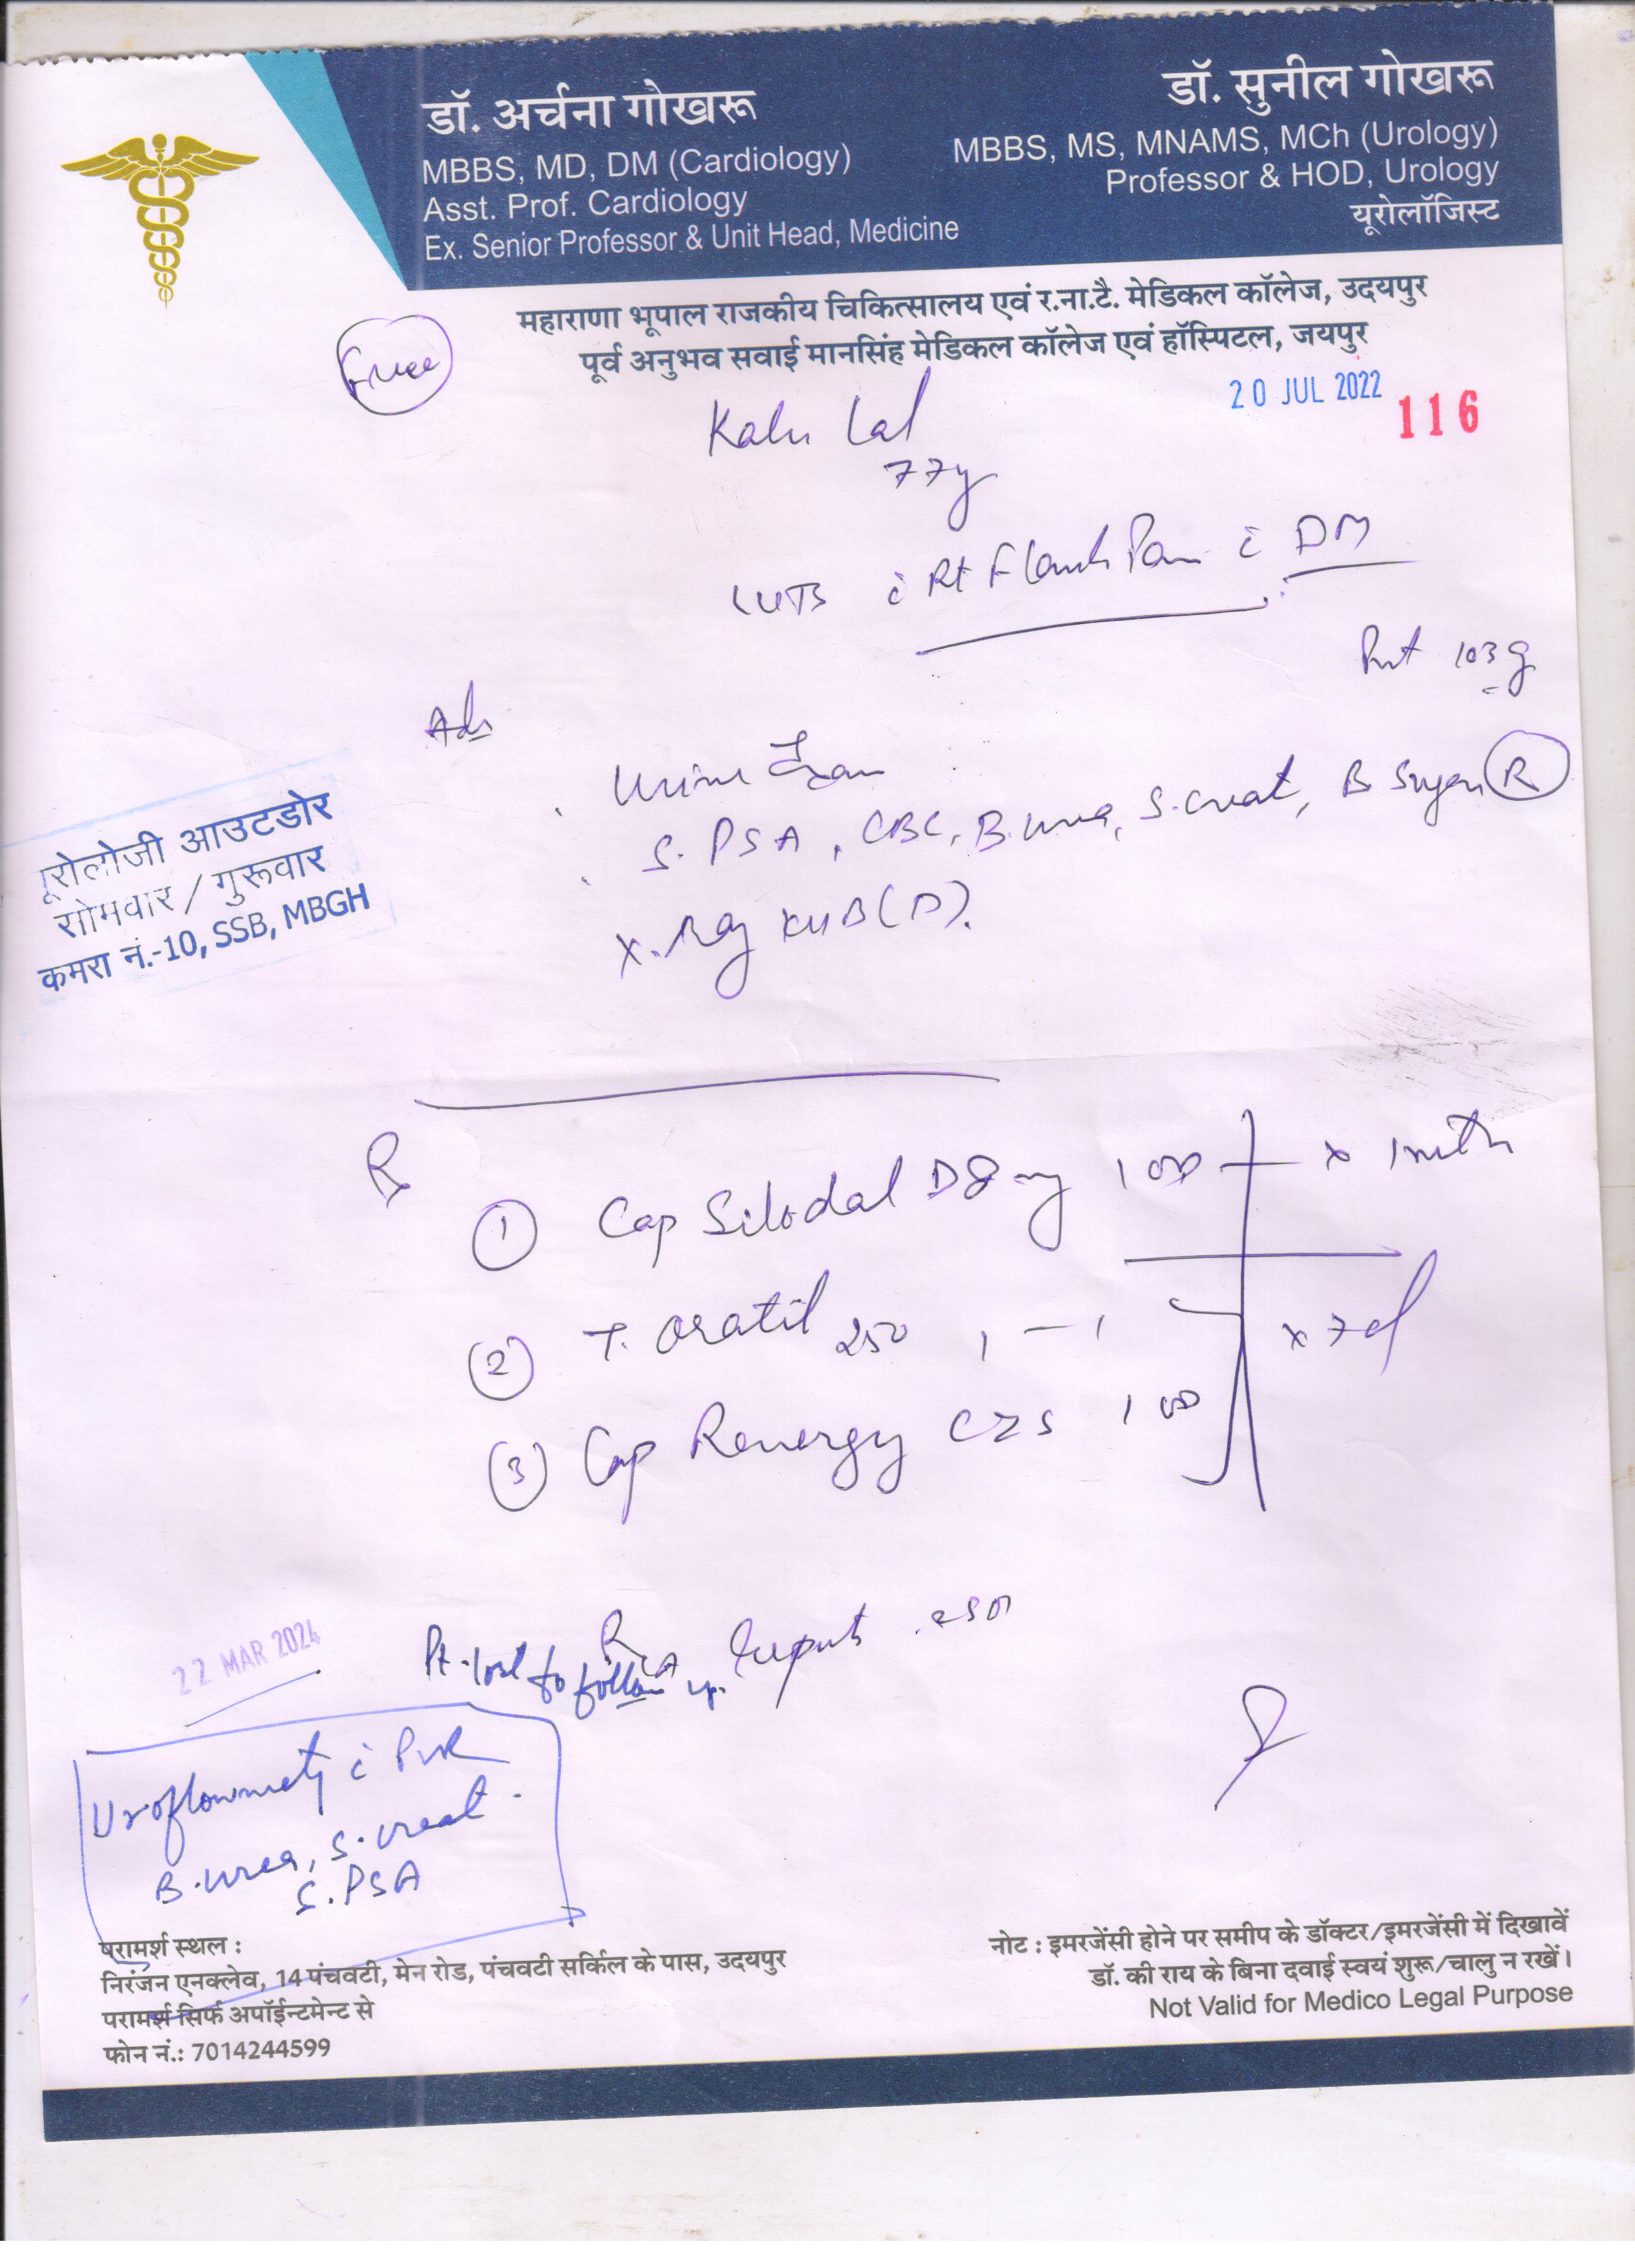 डॉ. अर्चना गोखरू
MBBS, MD, DM (Cardiology)
Asst. Prof. Cardiology
Ex. Senior Professor & Unit Head, Medicine
डॉ. सुनील गोखरू
MBBS, MS, MNAMS, MCh (Urology)
Professor & HOD, Urology
यूरोलॉजिस्ट
महाराणा भूपाल राजकीय चिकित्सालय एवं र.ना.टै. मेडिकल कॉलेज, उदयपुर
पूर्व अनुभव सवाई मानसिंह मेडिकल कॉलेज एवं हॉस्पिटल, जयपुर
Free
20 JUL 2022
116
Kalu Lal
77y
LUTS c Rt Flank Pain c DM
103g
Adv
Urine Exam
S. PSA, CBC, B. urea, S. creat, B Sugar (R)
X-Ray KUB (D).
यूरोलोजी आउटडोर
सोमवार / गुरूवार
कमरा नं.-10, SSB, MBGH
Rx
1 Cap Silodal D 8mg 1 OD x 1 mth
2 T. Oratil 250 1 - 1 x 7d
3 Cap Renergy CZS 1 OD
R/A reports
22 MAR 2024
Pt. lost to follow up.
Uroflowmetry c PVR
B. urea, S. creat.
S. PSA
परामर्श स्थल :
निरंजन एनक्लेव, 14 पंचवटी, मेन रोड, पंचवटी सर्किल के पास, उदयपुर
परामर्श सिर्फ अपॉईन्टमेन्ट से
फोन नं.: 7014244599
नोट : इमरजेंसी होने पर समीप के डॉक्टर/इमरजेंसी में दिखावें
डॉ. की राय के बिना दवाई स्वयं शुरू/चालु न रखें।
Not Valid for Medico Legal Purpose